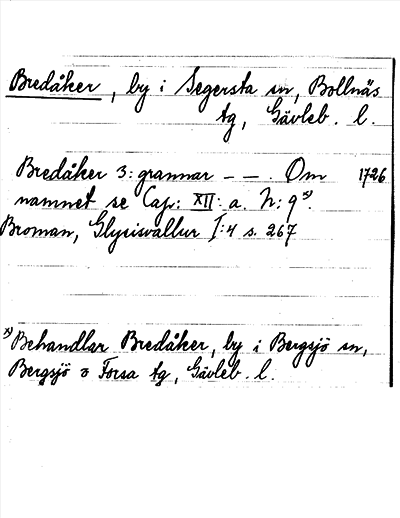 Bredåker, by i Segersta sn, Bollnäs
tg, Gävleb. l.
Bredåker 3: grannar - - . Om 1726
namnet se Cap: XII: a. N: 9 x).
Broman, Glysisvallur I:4 s. 267
x) Behandlar Bredåker, by i Bergsjö sn,
Bergsjö o Forsa tg, Gävleb. l.